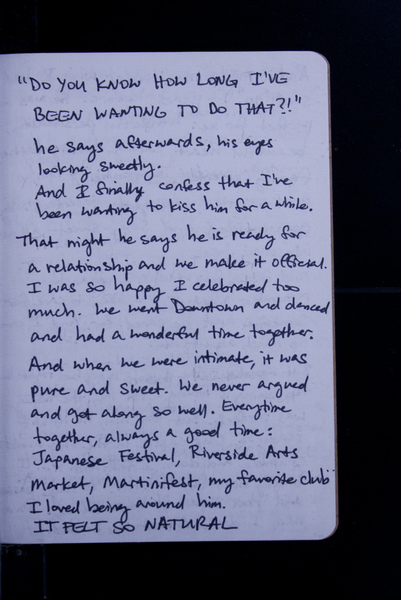 "DO YOU KNOW HOW LONG I'VE
BEEN WANTING TO DO THAT?!"
he says afterwards, his eyes
looking sweetly.
And I finally confess that I've
been wanting to kiss him for a while.
That night he says he is ready for
a relationship and we make it official.
I was so happy I celebrated too
much. We went Downtown and danced
and had a wonderful time together.
And when we were intimate, it was
pure and sweet. We never argued
and got along so well. Everytime
together, always a good time:
Japanese Festival, Riverside Arts
Market, Martinifest, my favorite club...
I loved being around him.
IT FELT SO NATURAL